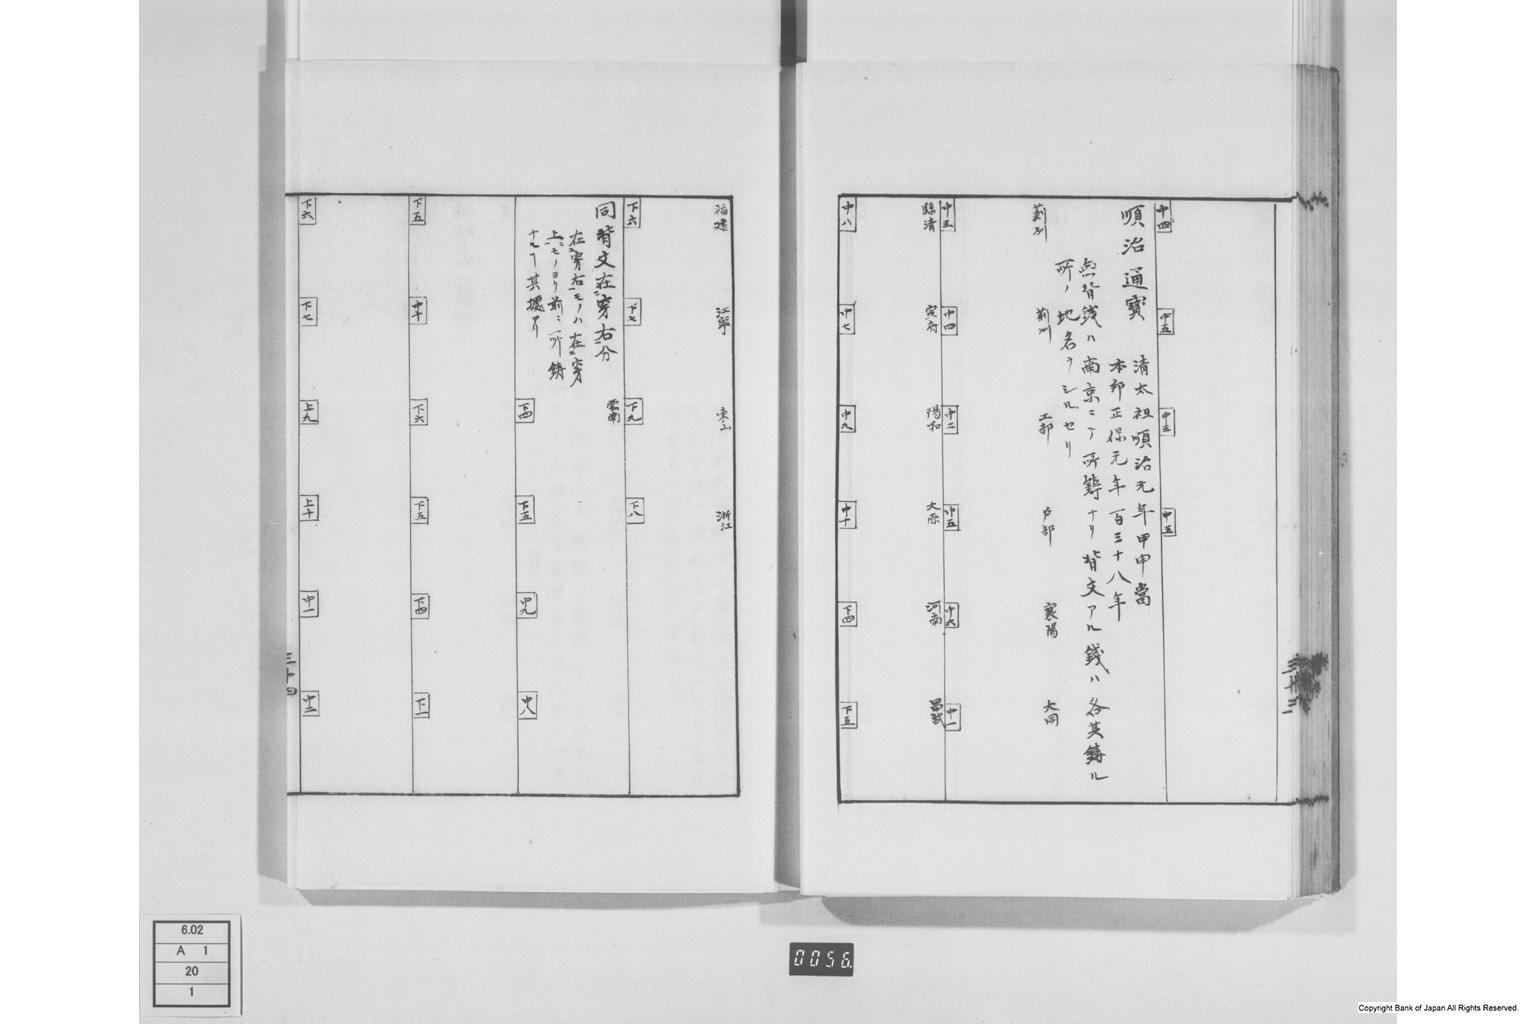 中四
中五
中三
中五
順治通寳
清太祖順治元年甲申當
本邦正保元年百三十八年
無背錢ハ南京ニテ所鑄ナリ背文アル錢ハ各其鑄ル
所ノ地名ヲシルセリ
薊州
荊州
工部
戸部
襄陽
大同
中三
中四
中二
中五
中六
中一
臨清
宣府
陽和
大原
河南
昌武
中八
中七
中九
中十
下四
下五
三十三
福建
江寧
東山
浙江
下六
下七
下九
下八
雲南
同背文在穿右分
在穿右モノハ在穿
上モノヨリ前ニ所鋳
ナルヿ其據アリ
下四
下五
中九
中八
下五
中十
下六
下五
下四
下二
下六
下七
上九
上十
中一
中二
三十四
6.02
A 1
20
1
0056
Copyright Bank of Japan All Rights Reserved.